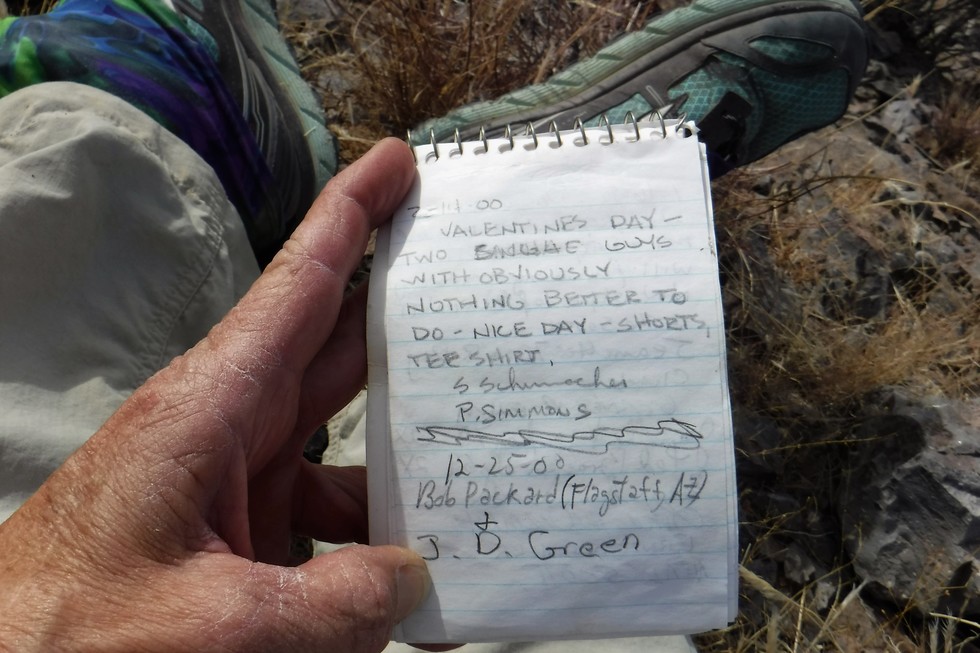 2-14-00
VALENTINES DAY -
TWO SINGLE GUYS
WITH OBVIOUSLY
NOTHING BETTER TO
DO - NICE DAY - SHORTS,
TEE SHIRT.
S Schumacher
P. SIMMONS
12-25-00
Bob Packard (Flagstaff, AZ)
+
J. D. Green